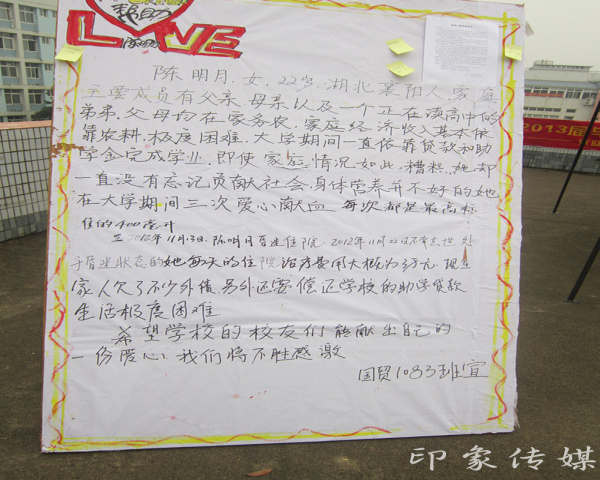 帮助
陈明月
LOVE
陈明月,女,22岁,湖北襄阳人,家庭
主要成员有父亲、母亲以及一个正在读高中的
弟弟,父母均在家务农,家庭经济收入基本依
靠农耕,极度困难,大学期间一直依靠贷款和助
学金完成学业,即使家庭情况如此糟糕,她却
一直没有忘记贡献社会,身体营养并不好的她
在大学期间三次爱心献血,每次都是最高标
准的400毫升
2012年11月3日,陈明月昏迷住院,2012年11月22日不幸去世,处
于昏迷状态的她每天的住院治疗费用大概为3万元,现在
家人欠了不少外债,另外还要偿还学校的助学贷款
生活极度困难
希望学校的校友们能献出自己的
一份爱心,我们将不胜感激
国贸1083班宣
2013届
印象传媒